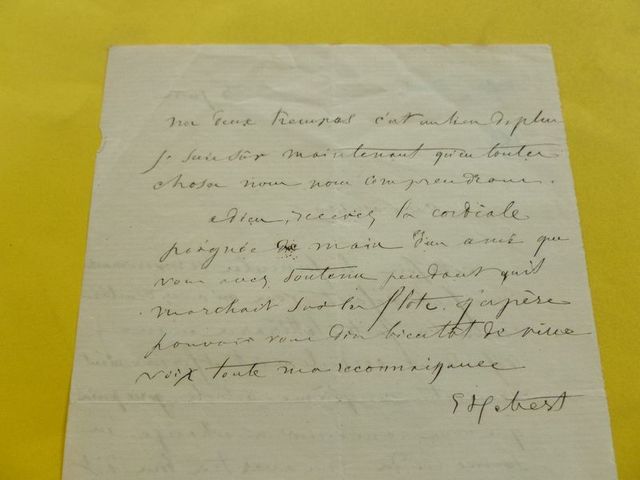 nos deux c'est un lien de plus
Je suis sûr maintenant qu'en toutes
choses nous nous comprendrons.
adieu, recevez la cordiale
poignée de main d'un ami que
vous avez soutenu pendant qu'il
marchait sur les flots. j'espère
pouvoir vous dire bientôt de vive
voix toute ma reconnaissance
E Hebert